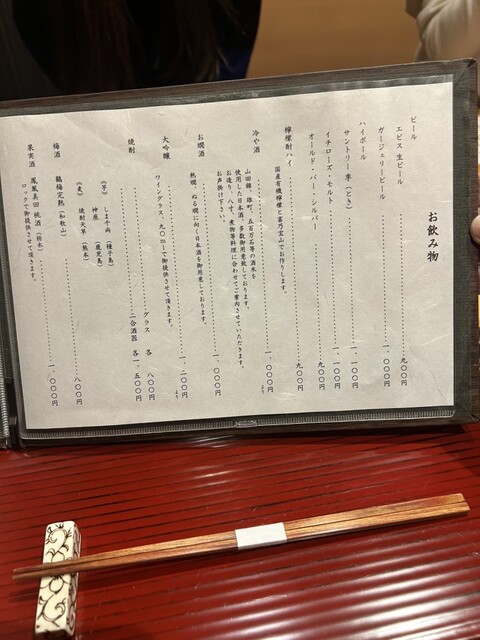 お飲み物
ビール
エビス 生ビール 九〇〇円
ガージェリービール 一、〇〇〇円
ハイボール
サントリー 季（とき） 一、一〇〇円
イチローズ・モルト 一、一〇〇円
オールド・パー・シルバー 九〇〇円
檸檬酎ハイ 九〇〇円
国産有機檸檬と富乃宝山でお作りします。
冷や酒 一、〇〇〇円より
山田錦、雄町、五百万石等の酒米を
使用した日本酒、多数御用意致しております。
お造り、八寸、煮物等料理に合わせてご案内させていただきます。
お声掛け下さい。
お燗酒 一、〇〇〇円
熱燗、ぬる燗に向く日本酒を御用意しております。
大吟醸 一、二〇〇円より
ワイングラス、九〇mlで御提供させて頂きます。
焼酎 グラス 各 八〇〇円
二合酒器 各 一、五〇〇円
（芋） しま千両 （種子島）
神座 （鹿児島）
（麦） 焼酎天草 （熊本）
梅酒
鶴梅完熟（和歌山） 八〇〇円
果実酒 鳳凰美田 桃酒（栃木） 一、〇〇〇円
ロックで御提供させて頂きます。